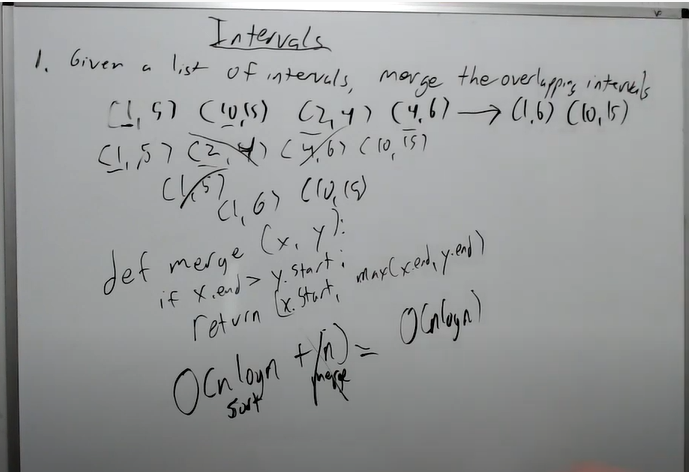 Intervals
1. Given a list of intervals, merge the overlapping intervals
(1, 5) (10, 15) (2, 4) (4, 6) → (1, 6) (10, 15)
(1, 5) (2, 4) (4, 6) (10, 15)
(1, 5)
(1, 6) (10, 15)
def merge (x, y):
if x.end > y.start:
return (x.start, max(x.end, y.end)
O(n logn + n) = O(n logn)
sort merge